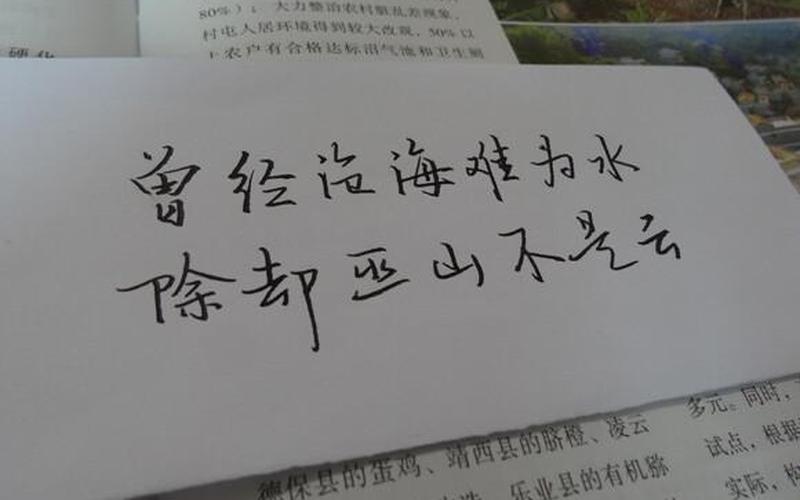 硬化
80%)；大力整治农村脏乱差现象，
村屯人居环境得到较大改观，50%以
上农户有合格达标沼气池和卫生厕
曾经沧海难为水
除却巫山不是云
多元。同时，
德保县的蛋鸡、靖西县的脐橙、凌云
试点，根据
乐业县的有机猕
实际，构